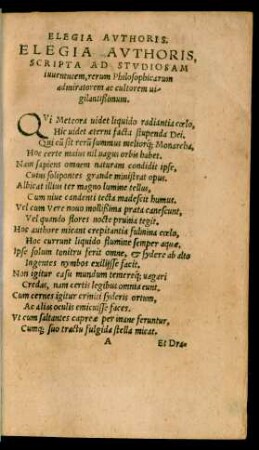 ELEGIA AVTHORIS.
ELEGIA AVTHORIS,
SCRIPTA AD STVDIOSAM
iuuentutem, rerum Philosophicarum
admiratorem ac cultorem ui-
gilantißimum.
QVi Meteora uidet liquido radiantia cœlo,
Hic uidet æterni facta stupenda Dei.
Qui cũ sit rerũ summus meliorq; Monarcha,
Hoc certe maius nil uagus orbis habet.
Nam sapiens omnem naturam condidit ipse,
Cuius solipotens grande ministrat opus.
Albicat illius ter magno lumine tellus,
Cum niue candenti tecta madescit humus.
Vel cum Vere nouo mollißima prata canescunt,
Vel quando flores nocte pruina tegit.
Hoc authore micant crepitantia fulmina cœlo,
Hoc currunt liquido flumine semper aquæ.
Ipse solum tonitru ferit omne, & sydere ab alto
Ingentes nymbos exiliisse facit.
Non igitur casu mundum temereq; uagari
Credas, nam certis legibus omnia eunt.
Cum cernes igitur criniti syderis ortum,
Ac alias oculis emicuisse faces.
Vt cum saltantes capreæ per inane feruntur,
Cumq; suo tractu fulgida stella micat.
A
Et Dra-